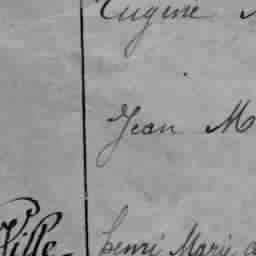 Eugène
Jean M
Ville
henri Marie